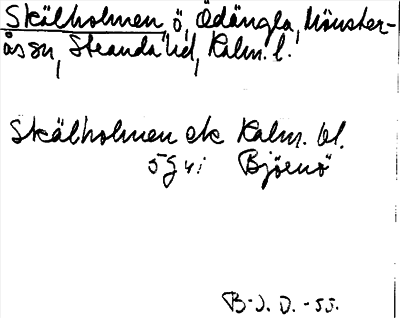 Skälholmen, ö, Ödängla, Mönster-
ås sn, Stranda hd, Kalm. l.
Skälholmen ek Kalm. bl.
5 g 4 i Björnö
B-J. D. -55.